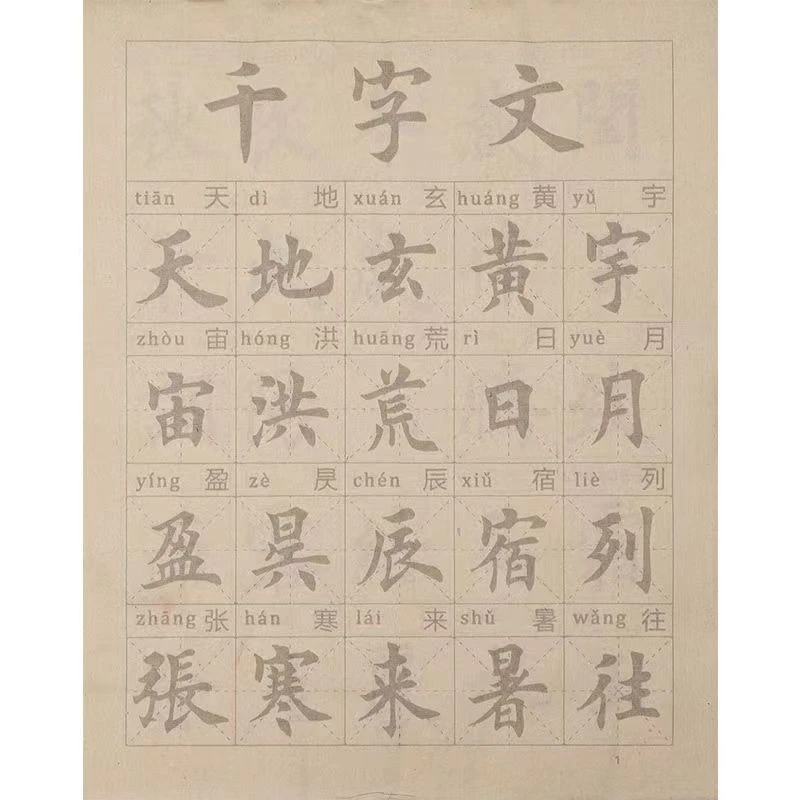 千字文
tiān 天 dì 地 xuán 玄 huáng 黄 yǔ 宇
天 地 玄 黄 宇
zhòu 宙 hóng 洪 huāng 荒 rì 日 yuè 月
宙 洪 荒 日 月
yíng 盈 zè 昃 chén 辰 xiǔ 宿 liè 列
盈 昃 辰 宿 列
zhāng 张 hán 寒 lái 来 shǔ 暑 wǎng 往
張 寒 来 暑 往
1